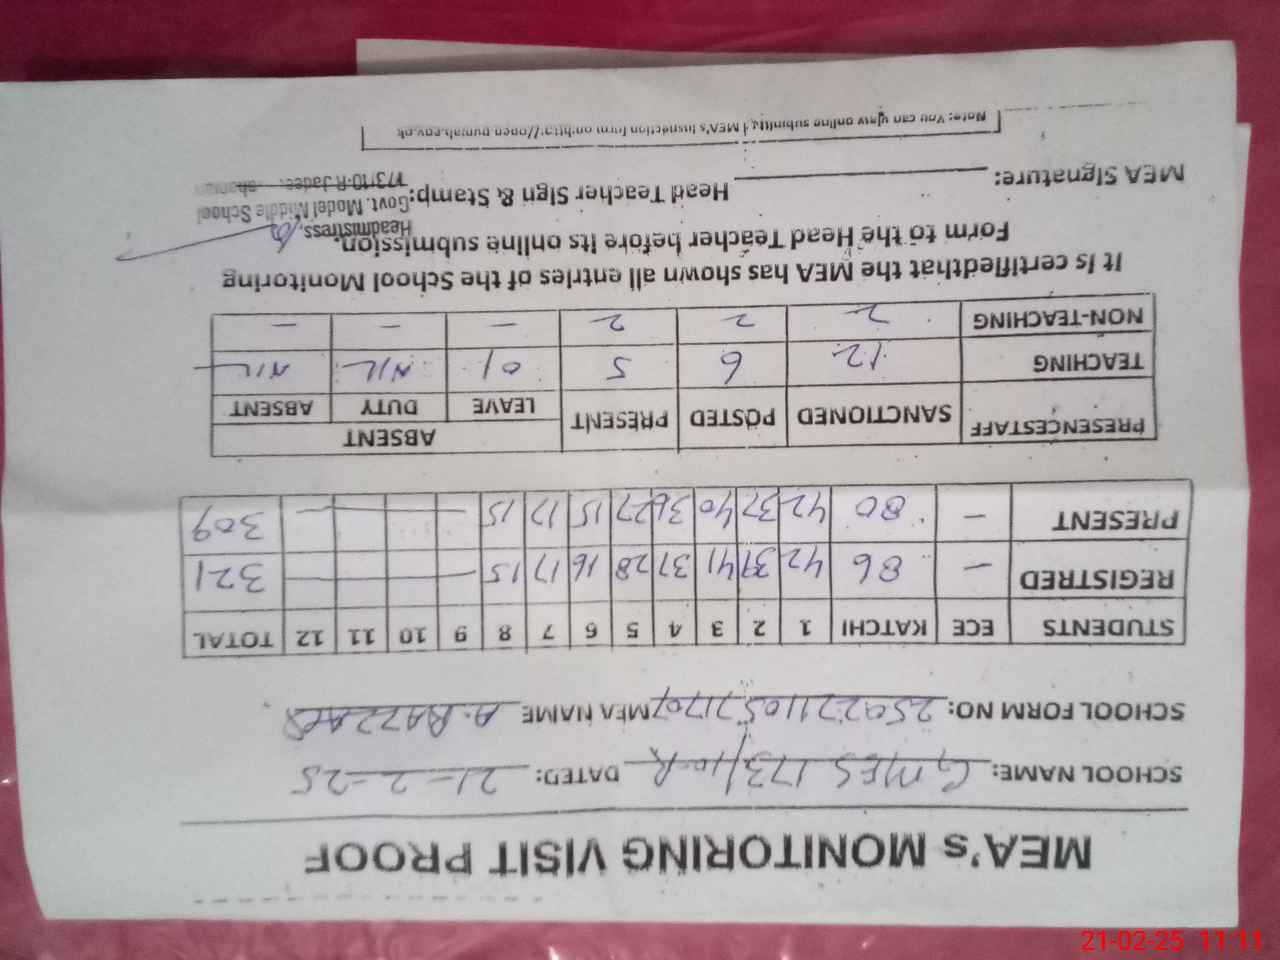 MEA's MONITORING VISIT PROOF
SCHOOL NAME: GMES 173/10-R DATED: 21-2-25
SCHOOL FORM NO: MEA NAME A. RAZZAQ
STUDENTS ECE KATCHI 1 2 3 4 5 6 7 8 9 10 11 12 TOTAL
REGISTRED - 86 42 39 41 37 28 16 17 15 321
PRESENT - 80 42 37 40 36 27 15 17 15 309
PRESENCESTAFF SANCTIONED POSTED PRESENT ABSENT
LEAVE DUTY ABSENT
TEACHING 12 6 5 01 NIL NIL
NON-TEACHING 2 2 2 - - -
It is certifiedthat the MEA has shown all entries of the School Monitoring
Form to the Head Teacher before its online submission.
Headmistress,
Govt. Model Middle School
173/10-R
MEA Signature: Head Teacher Sign & Stamp:
Note: You can view online submitted MEA's inspection form on:http://open.punjab.gov.pk
21-02-25 11:11